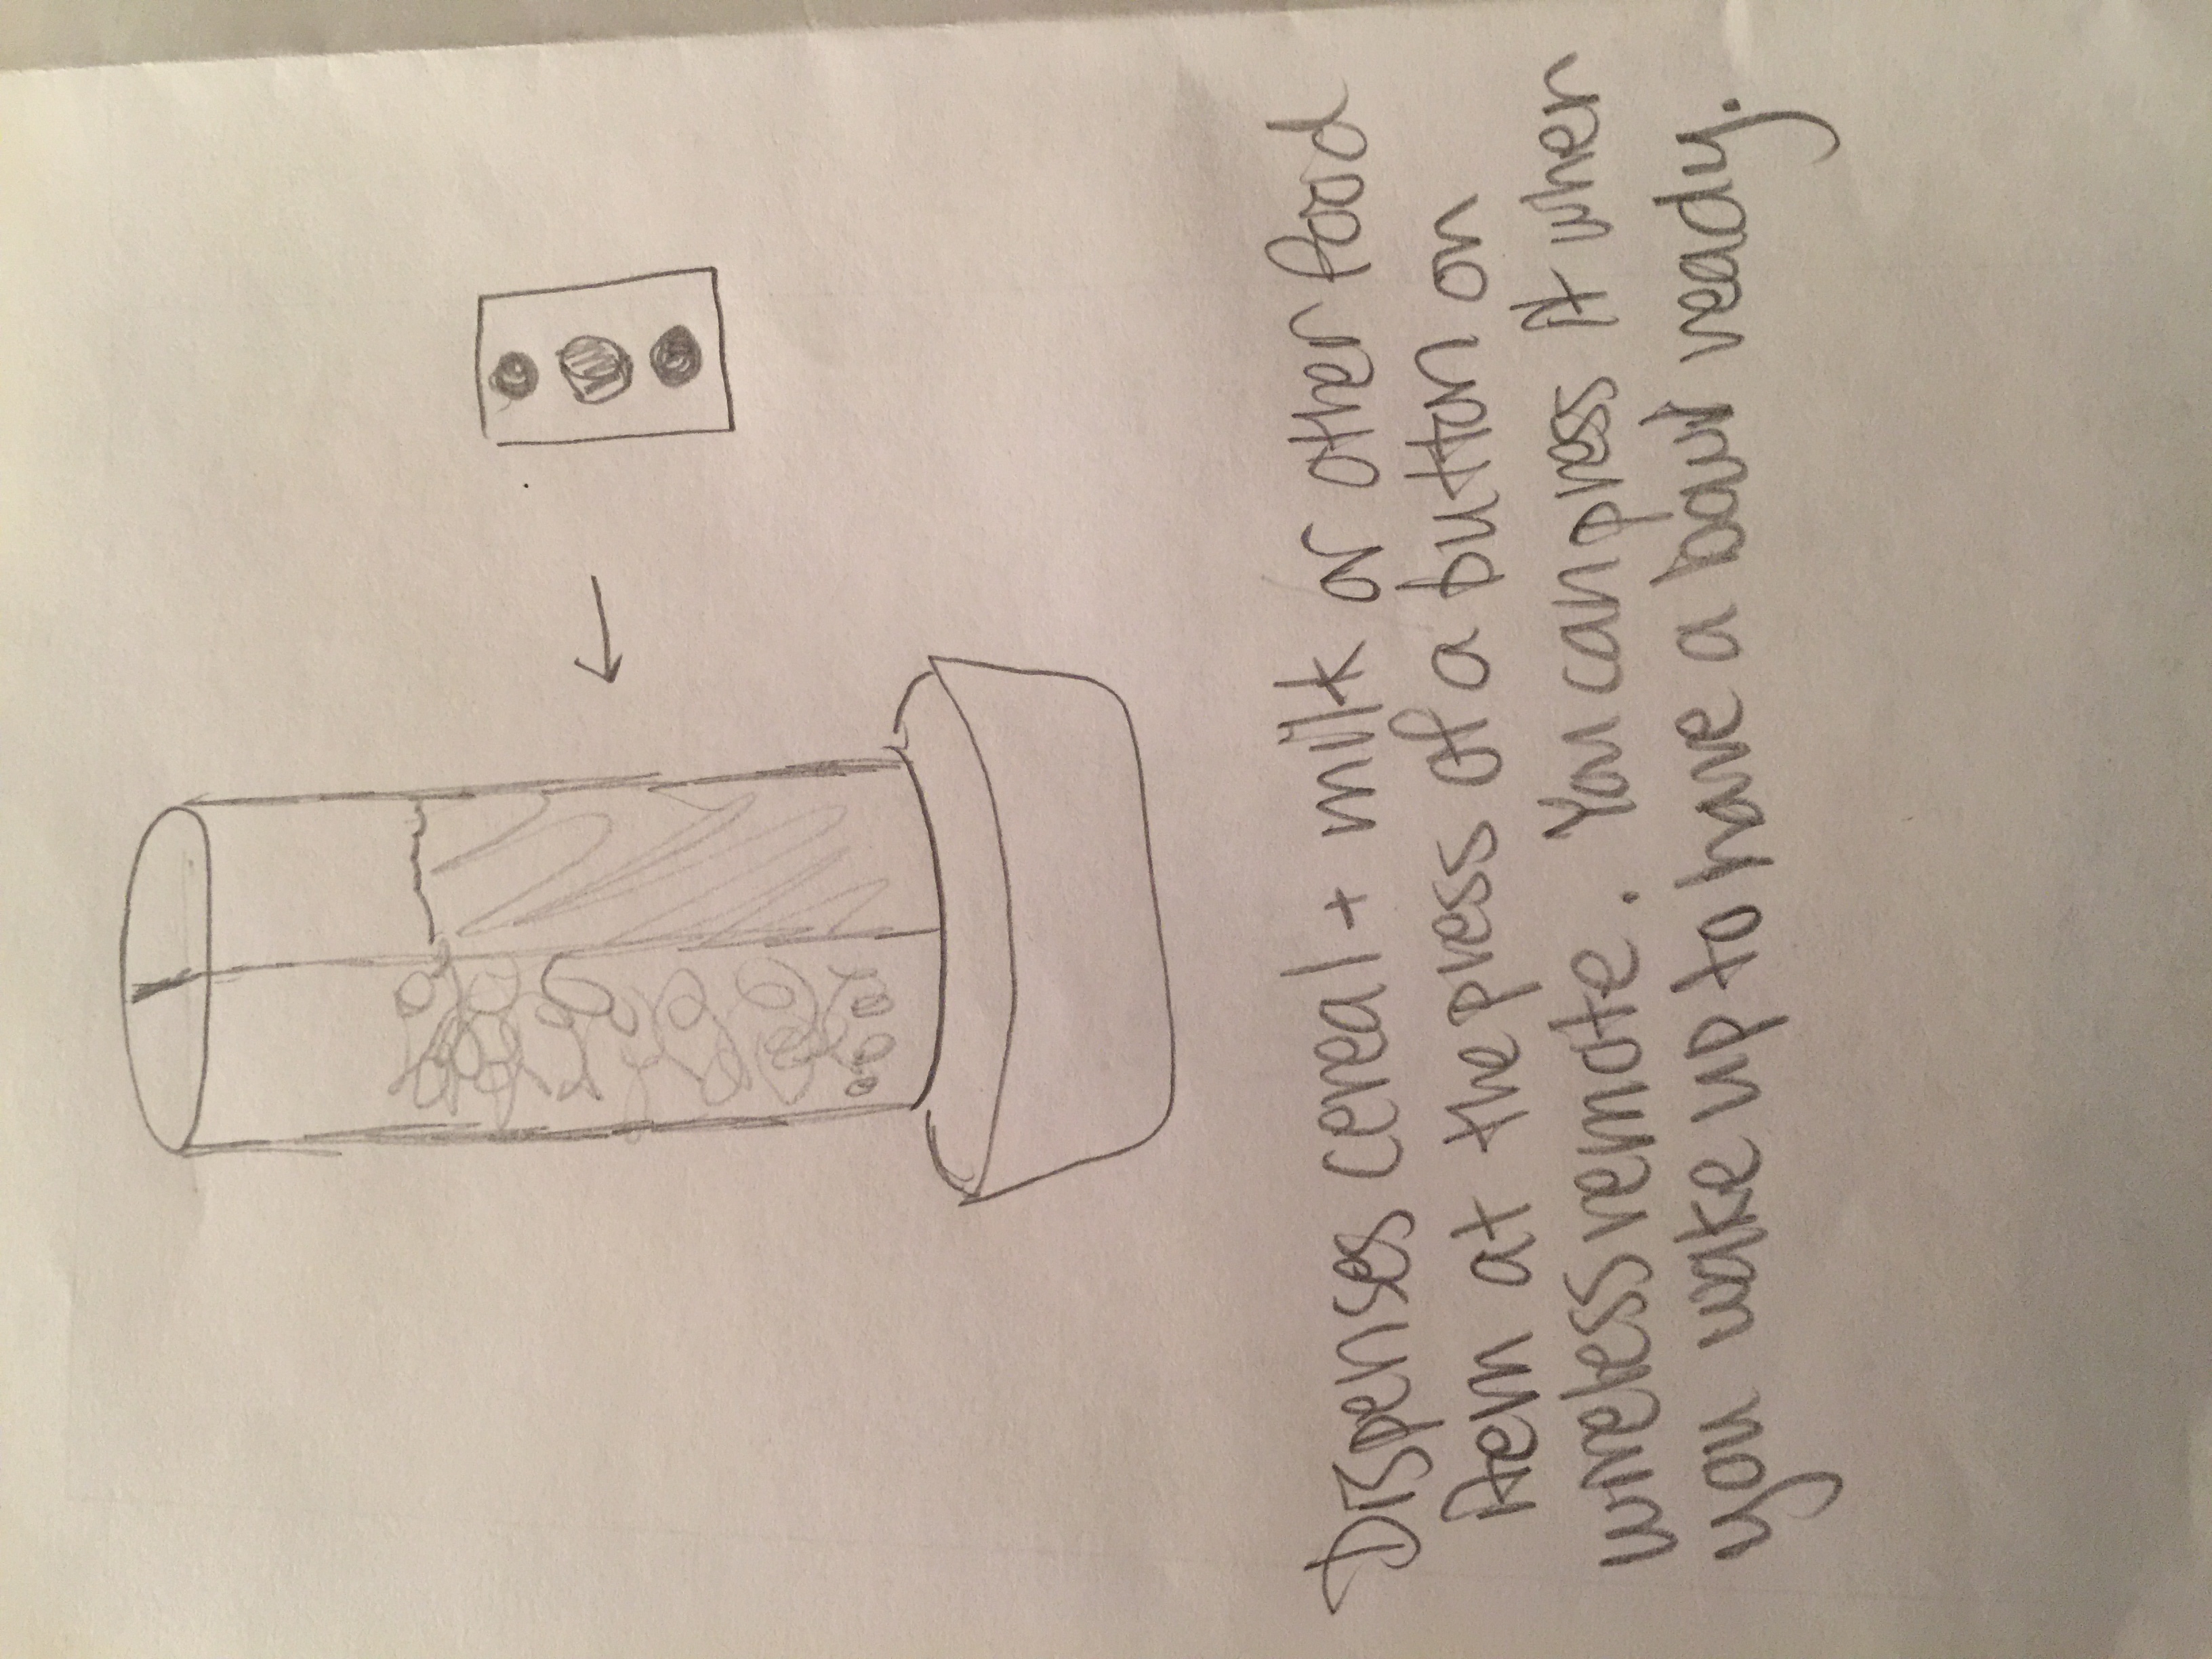 Dispenses cereal + milk or other food
item at the press of a button on
wireless remote. You can press it when
you wake up to have a bowl ready.